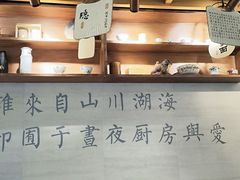 隐
來自山川湖海
囿于晝夜厨房與愛